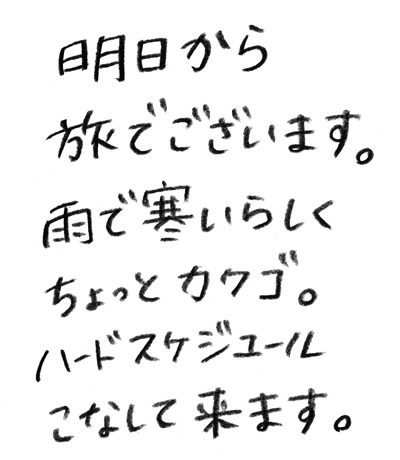 明日から
旅でございます。
雨で寒いらしく
ちょっとカクゴ。
ハードスケジュール
こなして来ます。